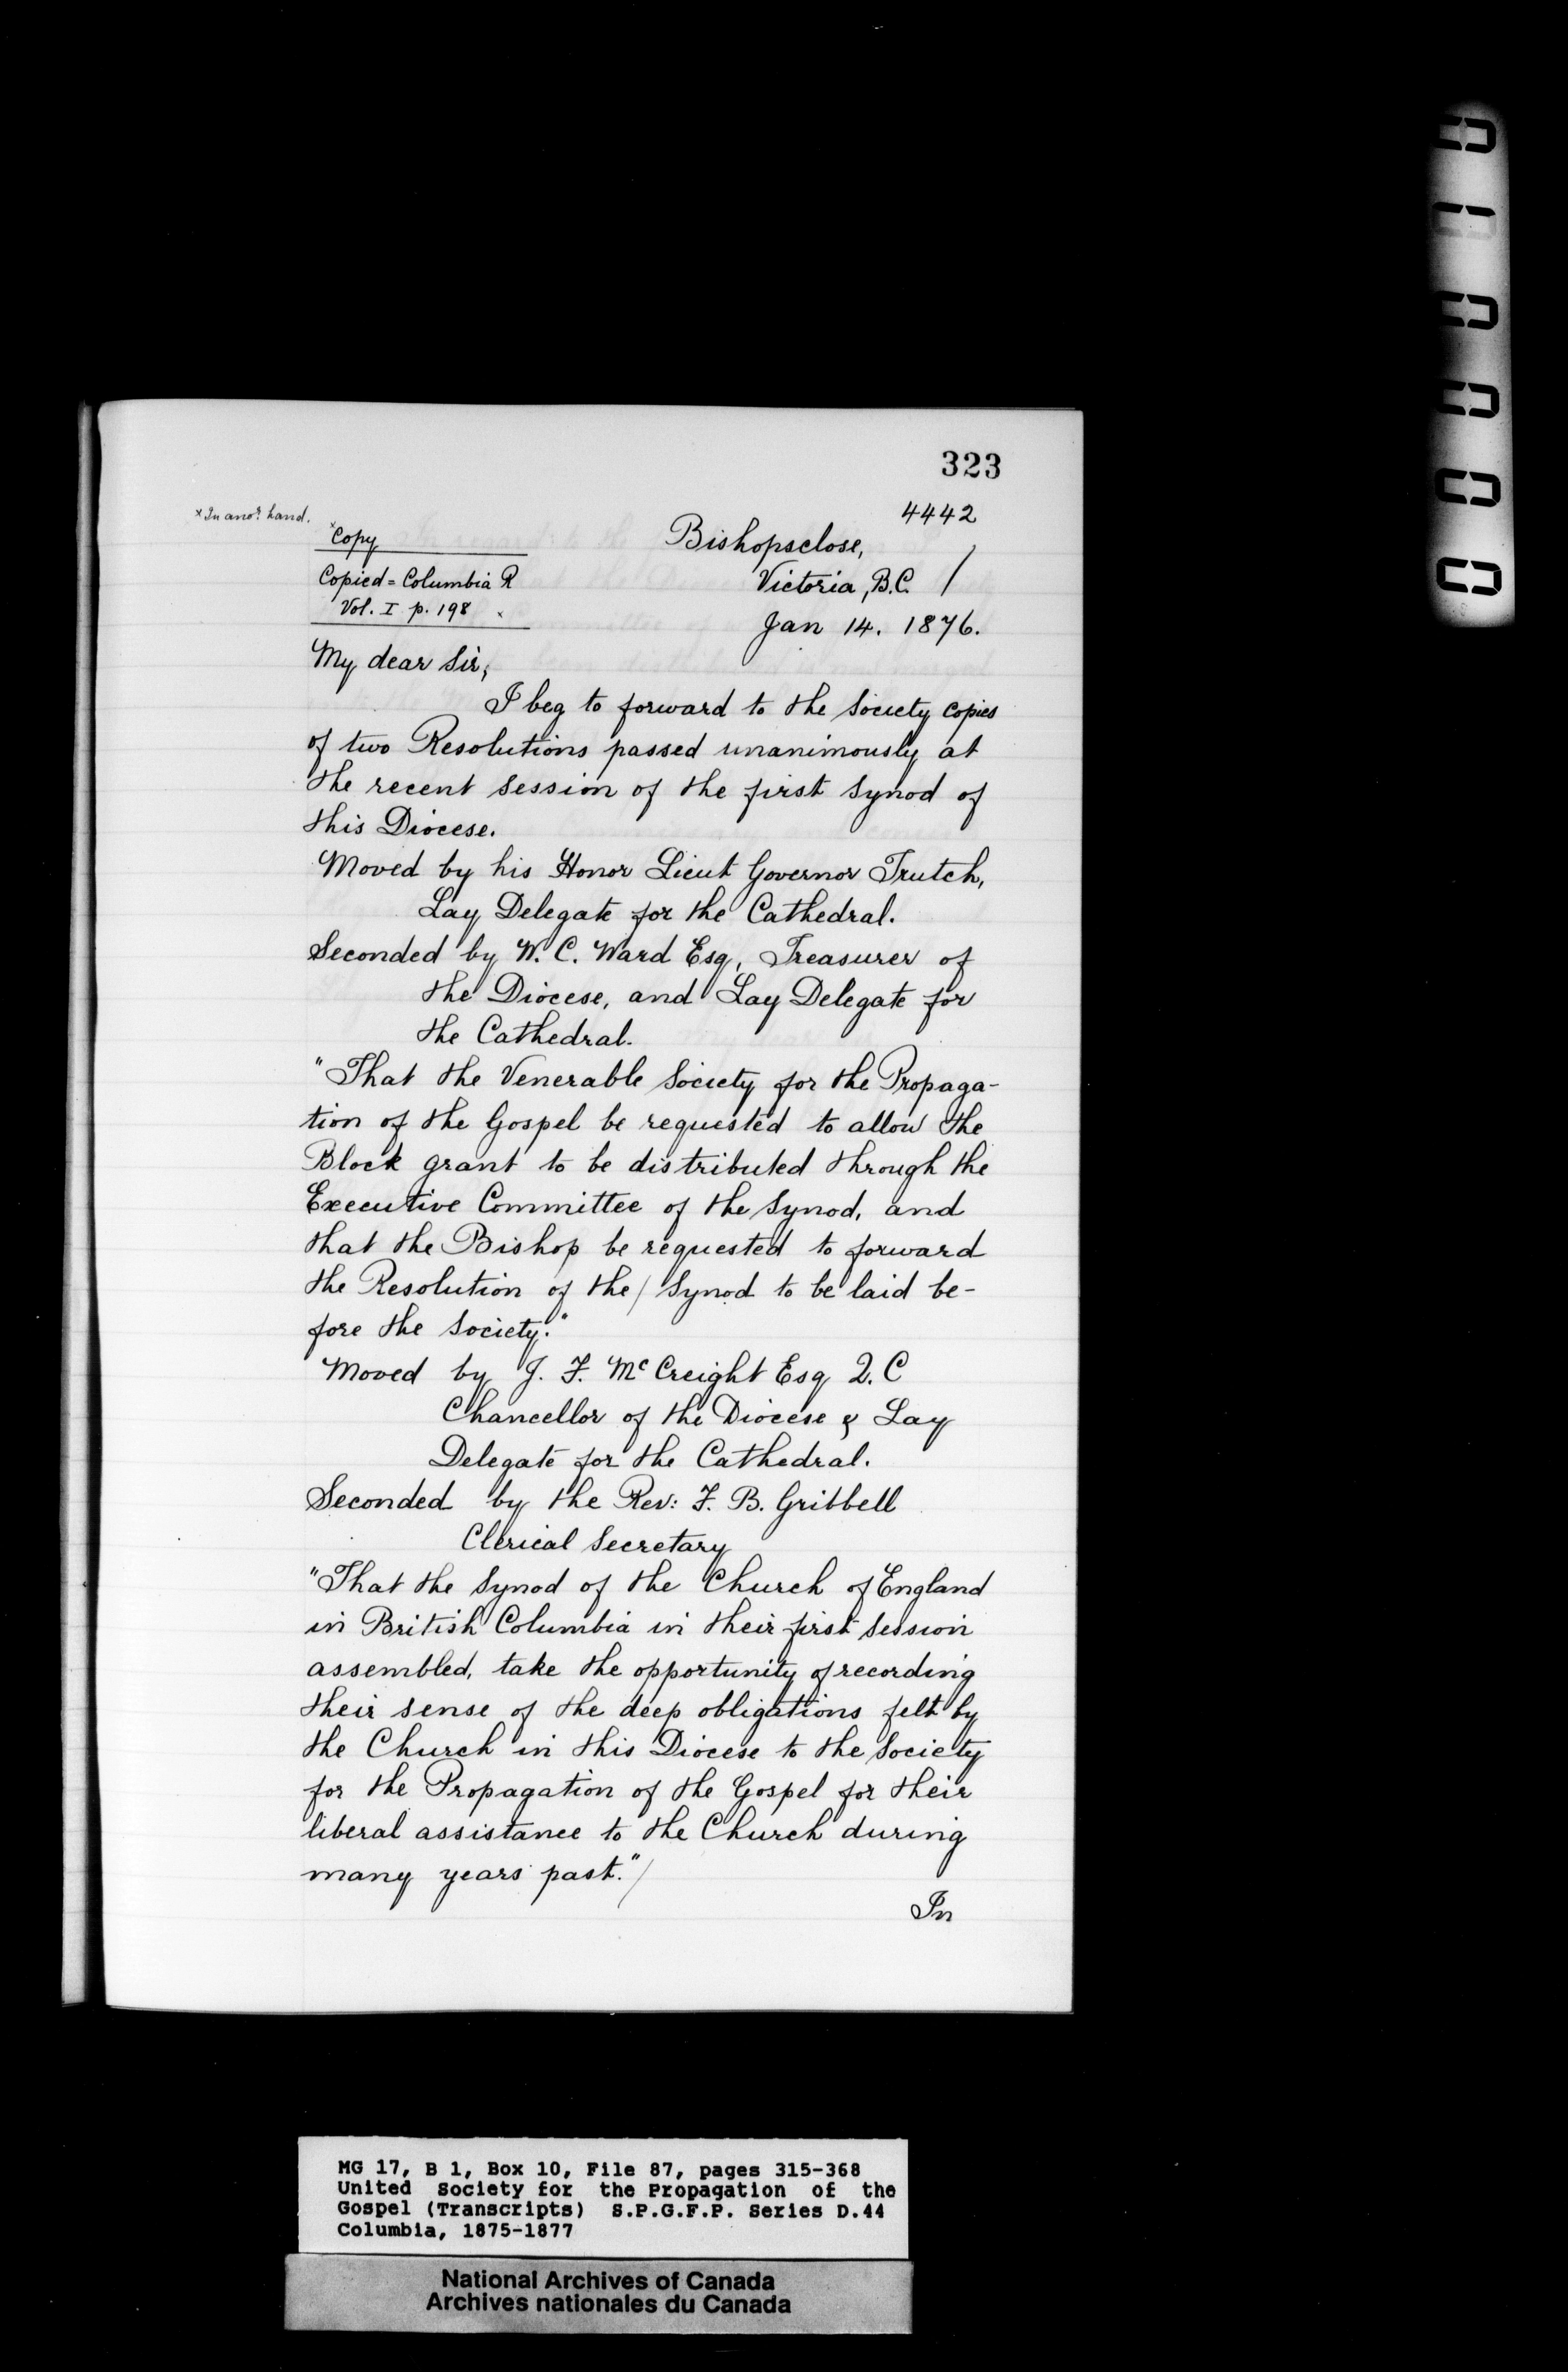 323
4442
×In ano.r hand.
×Copy
Copied = Columbia R
Vol. I p. 198 ×
Bishopsclose,
Victoria, B.C. /
Jan 14. 1876.
My dear Sir,
I beg to forward to the Society copies
of two Resolutions passed unanimously at
the recent session of the first Synod of
this Diocese.
Moved by his Honor Lieut Governor Trutch,
Lay Delegate for the Cathedral.
Seconded by W. C. Ward Esq, Treasurer of
the Diocese, and Lay Delegate for
the Cathedral.
"That the Venerable Society for the Propaga-
tion of the Gospel be requested to allow the
Block grant to be distributed through the
Executive Committee of the Synod, and
that the Bishop be requested to forward
the Resolution of the / Synod to be laid be-
fore the Society."
Moved by J. F. McCreight Esq Q.C
Chancellor of the Diocese & Lay
Delegate for the Cathedral.
Seconded by the Rev: F. B. Gribbell
Clerical Secretary
"That the Synod of the Church of England
in British Columbia in their first session
assembled, take the opportunity of recording
their sense of the deep obligations felt by
the Church in this Diocese to the Society
for the Propagation of the Gospel for their
liberal assistance to the Church during
many years past." /
In
MG 17, B 1, Box 10, File 87, pages 315-368
United Society for the Propagation of the
Gospel (Transcripts) S.P.G.F.P. Series D.44
Columbia, 1875-1877
National Archives of Canada
Archives nationales du Canada